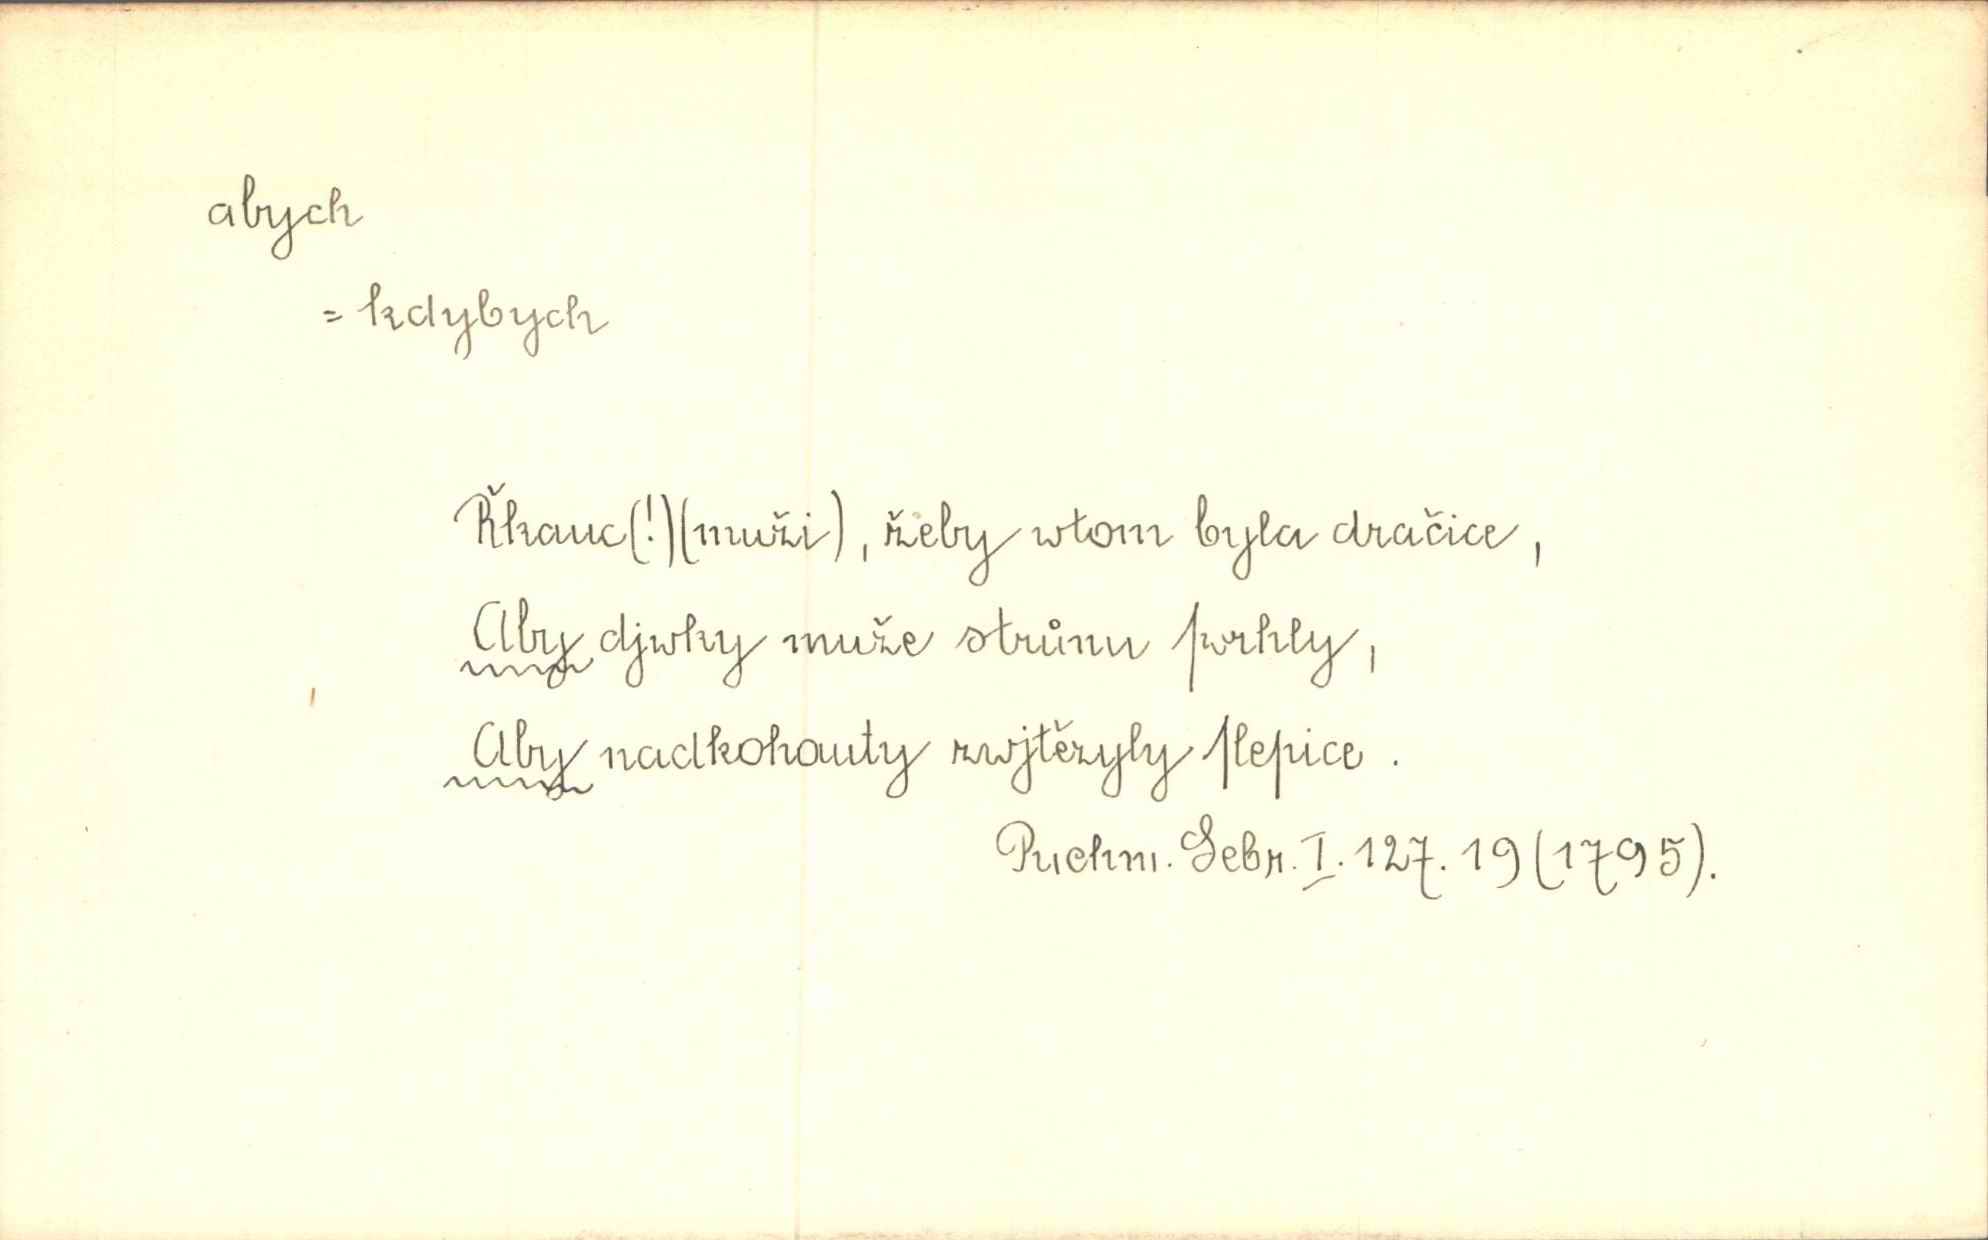 abych
= kdybych
Řkauc(!)(muži), žeby wtom byla dračice,
Aby djwky muže strůnu frkly,
Aby nadkohauty zwjtězyly slepice.
Puchm. Sebr. I. 127. 19 (1795).